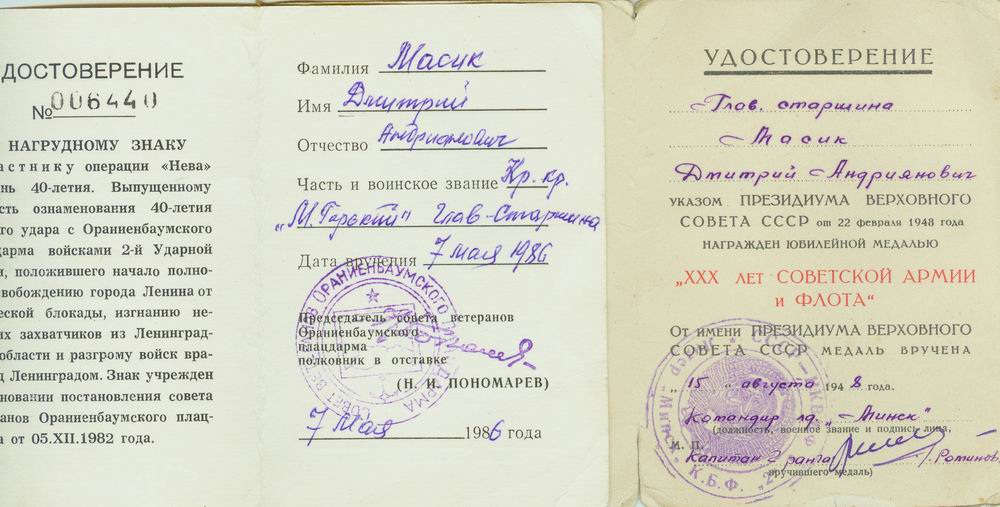 ДОСТОВЕРЕНИЕ
№ 006440
НАГРУДНОМУ ЗНАКУ
астнику операции «Нева»
нь 40-летия. Выпущенному
сть ознаменования 40-летия
го удара с Ораниенбаумского
дарма войсками 2-й Ударной
и, положившего начало полно-
свобождению города Ленина от
еской блокады, изгнанию не-
их захватчиков из Ленинград-
области и разгрому войск вра-
д Ленинградом. Знак учрежден
новании постановления совета
анов Ораниенбаумского плац-
а от 05.XII.1982 года.
Фамилия Масик
Имя Дмитрий
Отчество Андриянович
Часть и воинское звание Кр. кр.
„М. Горький" Глав-Старшина
Дата вручения 7 мая 1986
Председатель совета ветеранов
Ораниенбаумского
плацдарма
полковник в отставке
(Н. И. ПОНОМАРЕВ)
7 мая 1986 года
СОВЕТ ВЕТЕРАНОВ ОРАНИЕНБАУМСКОГО ПЛАЦДАРМА
УДОСТОВЕРЕНИЕ
Глав. старшина
Масик
Дмитрий Андриянович
УКАЗОМ ПРЕЗИДИУМА ВЕРХОВНОГО
СОВЕТА СССР от 22 февраля 1948 года
НАГРАЖДЕН ЮБИЛЕЙНОЙ МЕДАЛЬЮ
„XXX ЛЕТ СОВЕТСКОЙ АРМИИ
и ФЛОТА“
От имени ПРЕЗИДИУМА ВЕРХОВНОГО
СОВЕТА СССР МЕДАЛЬ ВРУЧЕНА
„15 " августа 1948 года.
Командир лд. „Минск"
(должность, военное звание и подпись лица,
М. П.
капитан 2 ранга
вручившего медаль)
К.Б.Ф. „Минск"